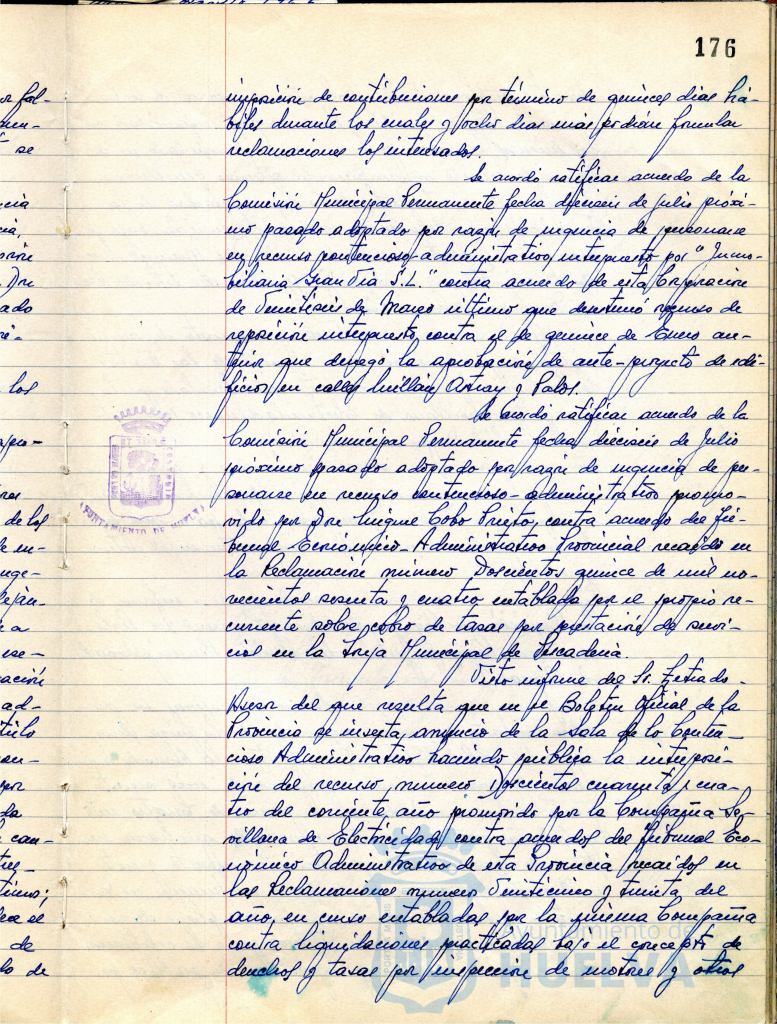 176
imposición de contribuciones por término de quince días há-
biles durante los cuales y ocho días más podrán formular
reclamaciones los interesados.
Se acordó ratificar acuerdo de la
Comisión Municipal Permanente fecha dieciseis de Julio próxi-
mo pasado adoptado por razón de urgencia de personarse
en recurso contencioso-administrativo interpuesto por "Inmo-
biliaria Gran Vía S.L." contra acuerdo de esta Corporación
de Veintiseis de Marzo último que desestimó recurso de
reposición interpuesto contra el de quince de Enero an-
terior que denegó la aprobación de ante-proyecto de edi-
ficios en calles Millán Astray y Palos.
Se acordó ratificar acuerdo de la
Comisión Municipal Permanente fecha dieciseis de Julio
próximo pasado adoptado por razón de urgencia de per-
sonarse en recurso contencioso-administrativo promo-
vido por Don Miguel Cobo Prieto, contra acuerdo del Tri-
bunal Económico-Administrativo Provincial recaido en
la Reclamación número Doscientos quince de mil no-
vecientos sesenta y cuatro entablada por el propio re-
currente sobre cobro de tasas por prestación de servi-
cios en la Lonja Municipal de Pescadería.
Visto informe del Sr. Letrado-
Asesor del que resulta que en el Boletín Oficial de la
Provincia se inserta anuncio de la Sala de lo Conten-
cioso Administrativo haciendo pública la interposi-
ción del recurso número Doscientos cuarenta y cua-
tro del corriente año promovido por la Compañía Se-
villana de Electricidad contra acuerdos del Tribunal Eco-
nómico Administrativo de esta Provincia recaidos en
las Reclamaciones número Veinticinco y treinta del
año en curso entabladas por la misma Compañía
contra liquidaciones practicadas bajo el concepto de
derechos y tasas por inspección de motores y otros
AYUNTAMIENTO DE HUELVA
Ayuntamiento de
HUELVA